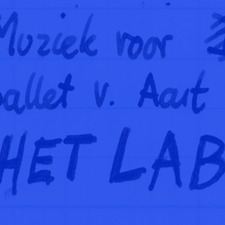 Muziek voor
ballet v. Aart
HET LAB